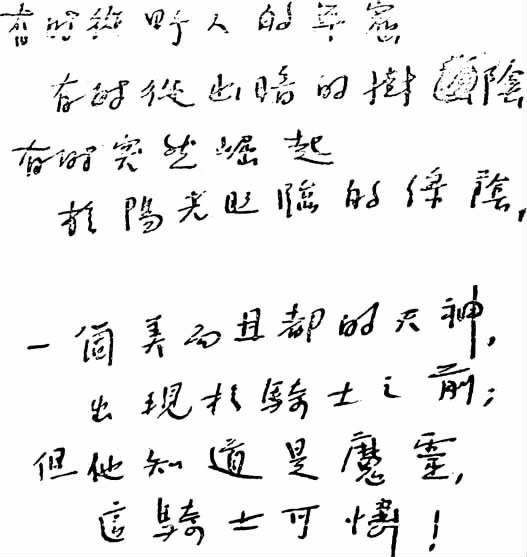 有時從野人的牢窟,
有時從幽暗的樹陰
有時突然崛起
於陽光照臨的綠蔭,
一個美而且都的天神,
出現於騎士之前;
但他知道是魔靈,
這騎士可憐!